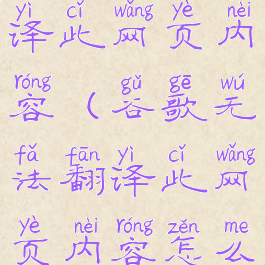 yì cǐ wǎng yè nèi
译此网页内
róng gǔ gē wú
容（谷歌无
fǎ fān yì cǐ wǎng
法翻译此网
yè nèi róng zěn me
页内容怎么